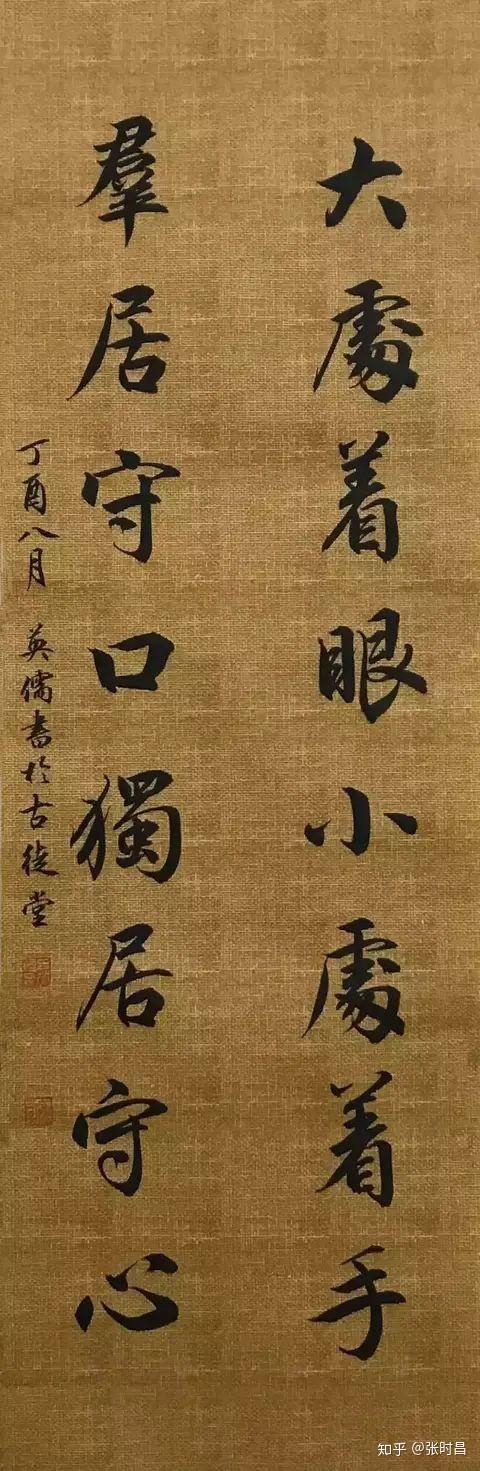 大處着眼小處着手
羣居守口獨居守心
丁酉八月 英儒書於古徒堂
知乎 @张时昌